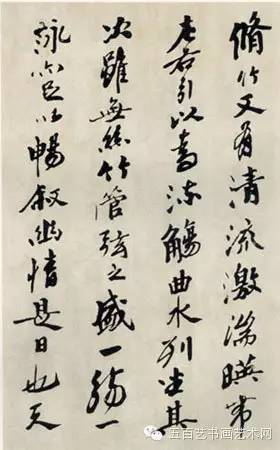 脩竹又有清流激湍暎带
左右引以為流觴曲水列坐其
次雖無絲竹管弦之盛一觴一
詠亦足以暢叙幽情是日也天
五百艺书画艺术网